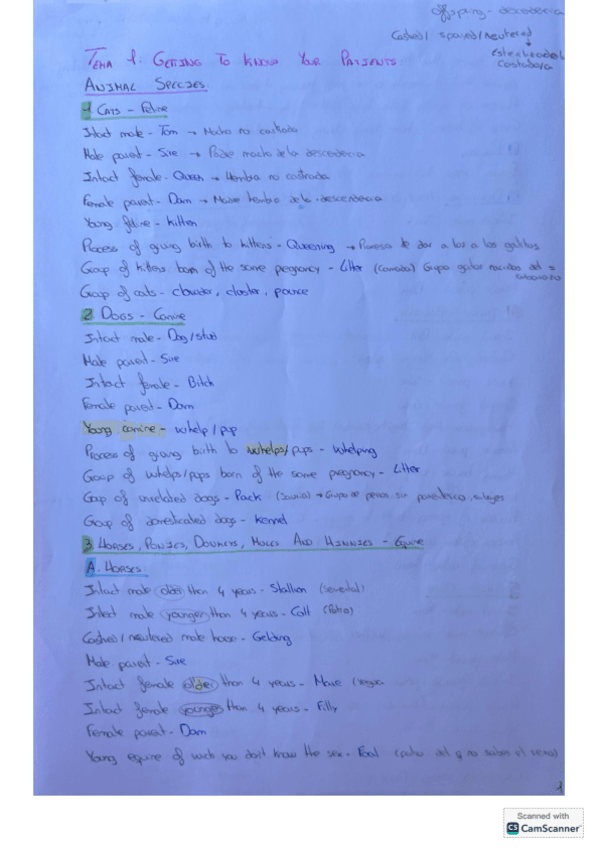 Offspring - descendencia
Castred / spayed / neutered
esterilizado/
castrado/a
TEMA 1: GETTING TO KNOW YOUR PATIENTS
ANIMAL SPECIES
1 CATS - Feline
Intact male - Tom → Macho no castrado
Male parent - Sire → Padre macho de la descendencia
Intact female - Queen → Hembra no castrada
Female parent - Dam → Madre hembra de la descendencia
Young feline - kitten
Process of giving birth to kittens - Queening → Proceso de dar a luz a los gatitos
Group of kittens born of the same pregnancy - Litter (camada) Grupo gatos nacidos del =
embarazo
Group of cats - clowder, cluster, pounce
2 DOGS - Canine
Intact male - Dog / stud
Male parent - Sire
Intact female - Bitch
Female parent - Dam
Young canine - whelp / pup
Process of giving birth to whelps / pups - Whelping
Group of whelps / pups born of the same pregnancy - Litter
Group of unrelated dogs - Pack → Grupo de perros sin parentesco
Group of domesticated dogs - kennel
3 HORSES, PONIES, DONKEYS, MULES AND HINNIES - Equine
A. HORSES
Intact male older than 4 years - Stallion (semental)
Intact male younger than 4 years - Colt (Potro)
Castred / neutered male horse - Gelding
Male parent - Sire
Intact female older than 4 years - Mare (yegua
Intact female younger than 4 years - Filly
Female parent - Dam
Young equine of wich you don't know the sex - Foal (potro del q no sabes el sexo)
1
Scanned with
CS CamScanner